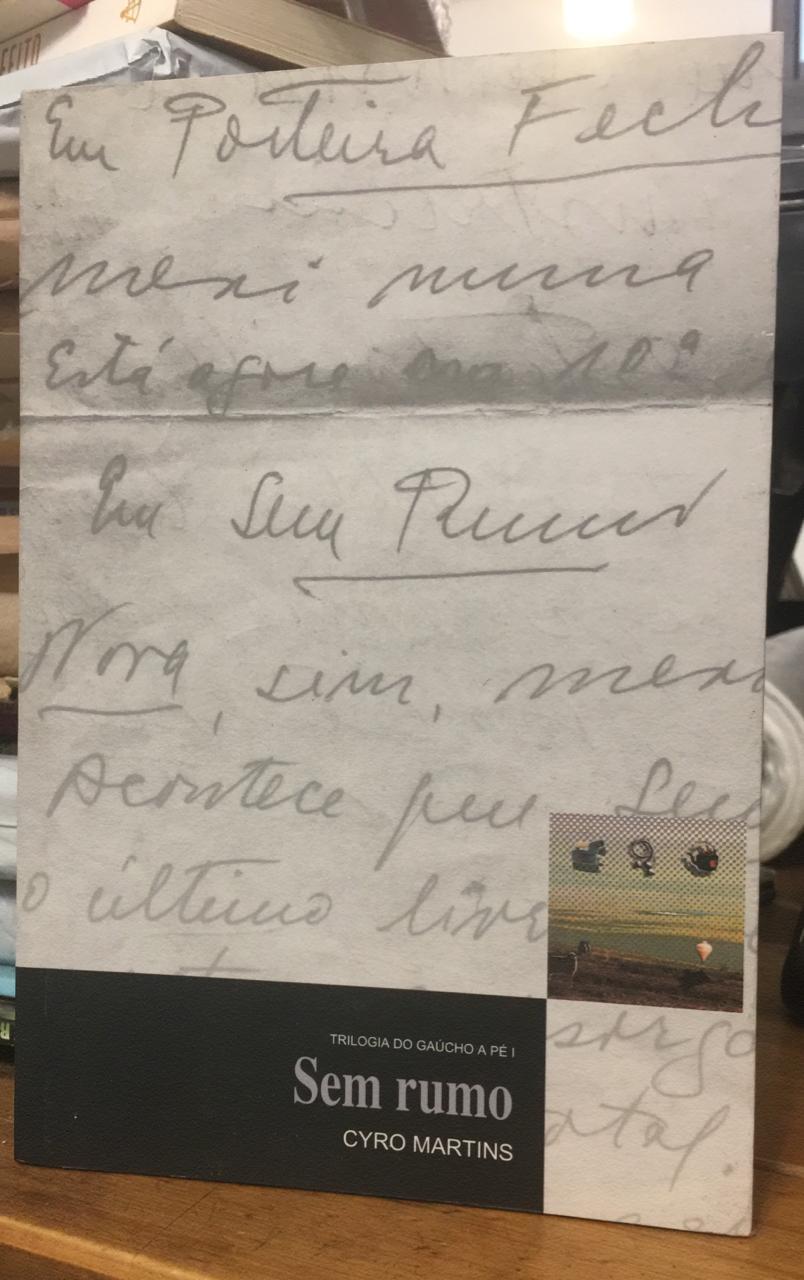 FEITO
Em Porteira Fech
mexi numa
Está agora 10ª
Em Sem Rumo
Nova, sim, mexi
Acontece que Sem
o último livro
sorgo
TRILOGIA DO GAÚCHO A PÉ I
Sem rumo
CYRO MARTINS